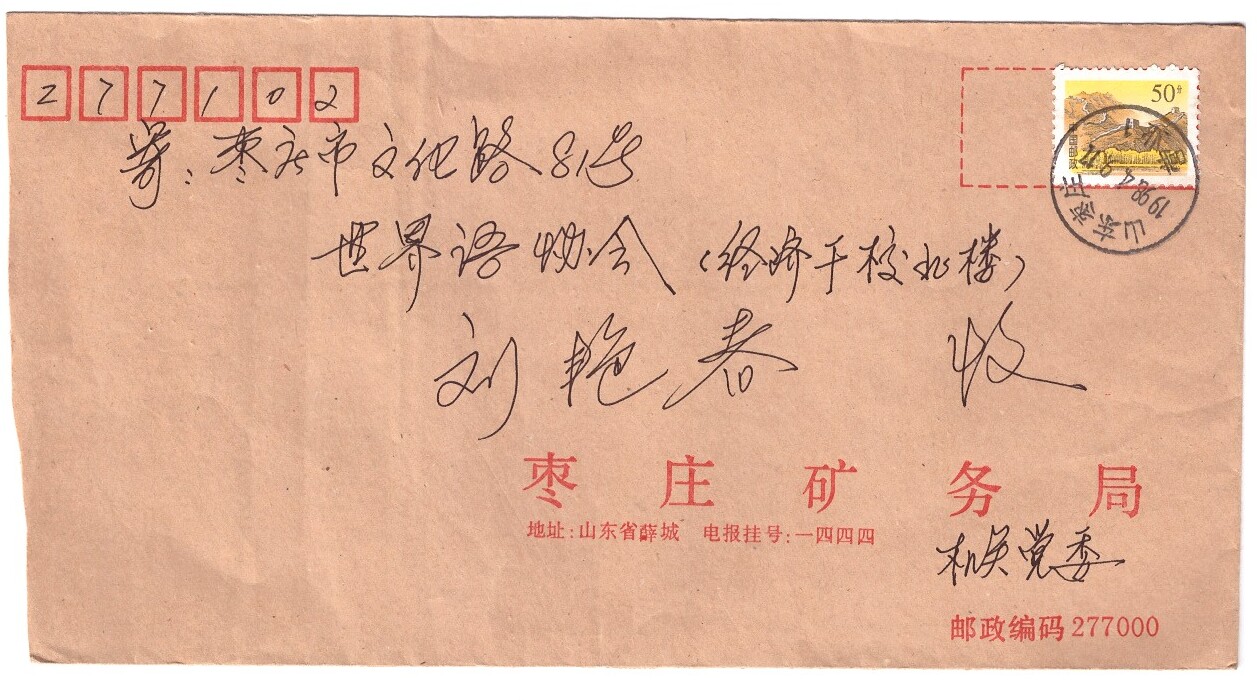 277102
寄:枣庄市文化路81号
世界语协会(经济干校北楼)
刘艳春 收
50分
山东枣庄
1998.4.9.17
枣庄矿务局
地址:山东省薛城 电报挂号:一四四四
机关党委
邮政编码277000